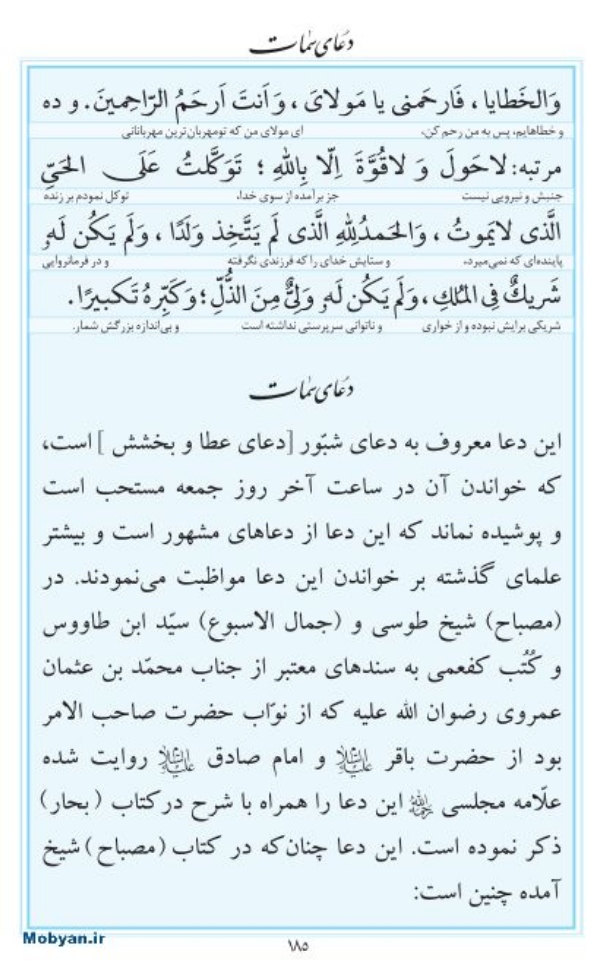 دعای سمات
وَالخَطایا ، فَارحَمنی یا مَولایَ ، وَ اَنتَ اَرحَمُ الرّاحِمینَ. و ده
و خطاهایم، پس به من رحم کن، ای مولای من که تو مهربان‌ترین مهربانانی
مرتبه: لاحَولَ وَ لاقُوَّةَ اِلّا بِاللهِ ؛ تَوَکَّلتُ عَلَی الحَیِّ
جنبش و نیرویی نیست جز برآمده از سوی خدا، توکل نمودم بر زنده
الَّذی لایَموتُ ، وَالحَمدُلِلّهِ الَّذی لَم یَتَّخِذ وَلَدًا ، وَلَم یَکُن لَهُ
پاینده‌ای که نمی‌میرد، و ستایش خدای را که فرزندی نگرفته و در فرمانروایی
شَریکٌ فِی المُلکِ ، وَلَم یَکُن لَهُ وَلِیٌّ مِنَ الذُّلِّ ؛ وَکَبِّرهُ تَکبیرًا .
شریکی برایش نبوده و از خواری و ناتوانی سرپرستی نداشته است و بی‌اندازه بزرگش شمار.
دعای سمات
این دعا معروف به دعای شبّور [دعای عطا و بخشش ] است،
که خواندن آن در ساعت آخر روز جمعه مستحب است
و پوشیده نماند که این دعا از دعاهای مشهور است و بیشتر
علمای گذشته بر خواندن این دعا مواظبت می‌نمودند. در
(مصباح) شیخ طوسی و (جمال الاسبوع) سیّد ابن طاووس
و کُتُب کفعمی به سندهای معتبر از جناب محمّد بن عثمان
عمروی رضوان الله علیه که از نوّاب حضرت صاحب الامر
بود از حضرت باقر علیه‌السلام و امام صادق علیه‌السلام روایت شده
علّامه مجلسی رحمه‌الله این دعا را همراه با شرح در کتاب (بحار)
ذکر نموده است. این دعا چنان‌که در کتاب (مصباح) شیخ
آمده چنین است:
Mobyan.ir
۱۸۵